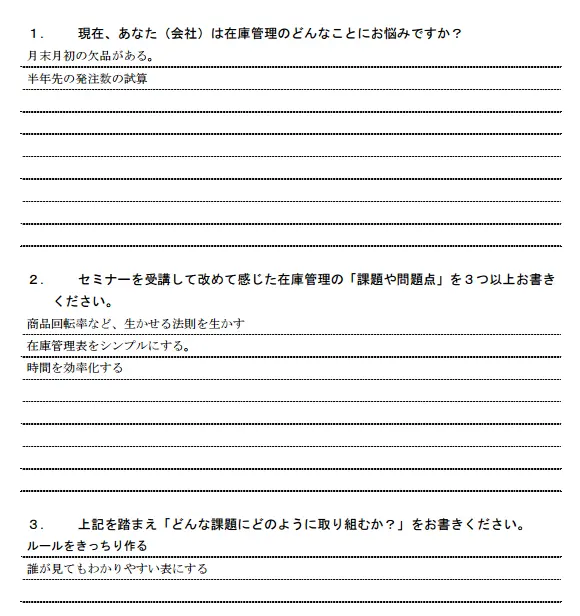 １．　現在、あなた（会社）は在庫管理のどんなことにお悩みですか？
月末月初の欠品がある。
半年先の発注数の試算
２．　セミナーを受講して改めて感じた在庫管理の「課題や問題点」を３つ以上お書き
ください。
商品回転率など、生かせる法則を生かす
在庫管理表をシンプルにする。
時間を効率化する
３．　上記を踏まえ「どんな課題にどのように取り組むか？」をお書きください。
ルールをきっちり作る
誰が見てもわかりやすい表にする